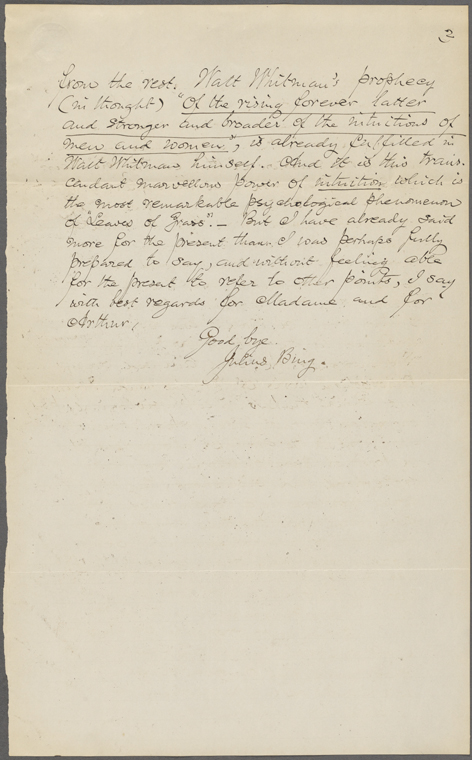 2
from the rest. Walt Whitman's prophecy
(in thought) "Of the rising forever taller
and stronger and broader of the intuitions of
men and women", is already fulfilled in
Walt Whitman himself. And it is this trans-
cendant marvellous power of intuition which is
the most remarkable psychological phenomenon
of "Leaves of Grass". — But I have already said
more for the present than I was perhaps fully
prepared to say, and without feeling able
for the present to refer to other points, I say
with best regards for Madame and for
Arthur,
Good bye.
Julius Bing.